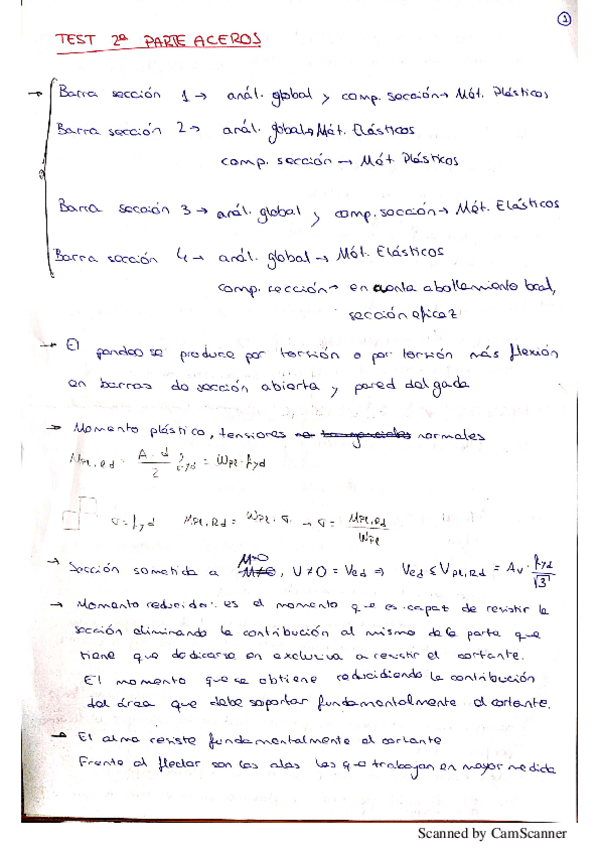 1
TEST 2ª PARTE ACEROS
→ Barra sección 1 → anál. global y comp. sección → Mét. Plásticos
Barra sección 2 → anál. global → Mét. Elásticos
comp. sección → Mét Plásticos
Barra sección 3 → anál. global y comp. sección → Mét. Elásticos
Barra sección 4 → anál. global → Mét. Elásticos
comp. sección → en cuenta abollamiento local,
sección eficaz
→ El pandeo se produce por torsión o por torsión más flexión
en barras de sección abierta y pared delgada
→ Momento plástico, tensiones no tangenciales normales
Mpl.Rd = A·d/2 fyd = Wpl·fyd
σ = fyd Mpl,Rd = Wpl·σ → σ = Mpl,Rd/Wpl
M=0
→ Sección sometida a M≠0, V≠0 = Ved ⇒ Ved ≤ Vpl,Rd = Av·fyd/√3
→ Momento reducido: es el momento que es capaz de resistir la
sección eliminando la contribución al mismo de la parte que
tiene que dedicarse en exclusiva a resistir el cortante.
El momento que se obtiene reduciendo la contribución
del área que debe soportar fundamentalmente el cortante.
→ El alma resiste fundamentalmente al cortante
Frente al flector son las alas las que trabajan en mayor medida
Scanned by CamScanner